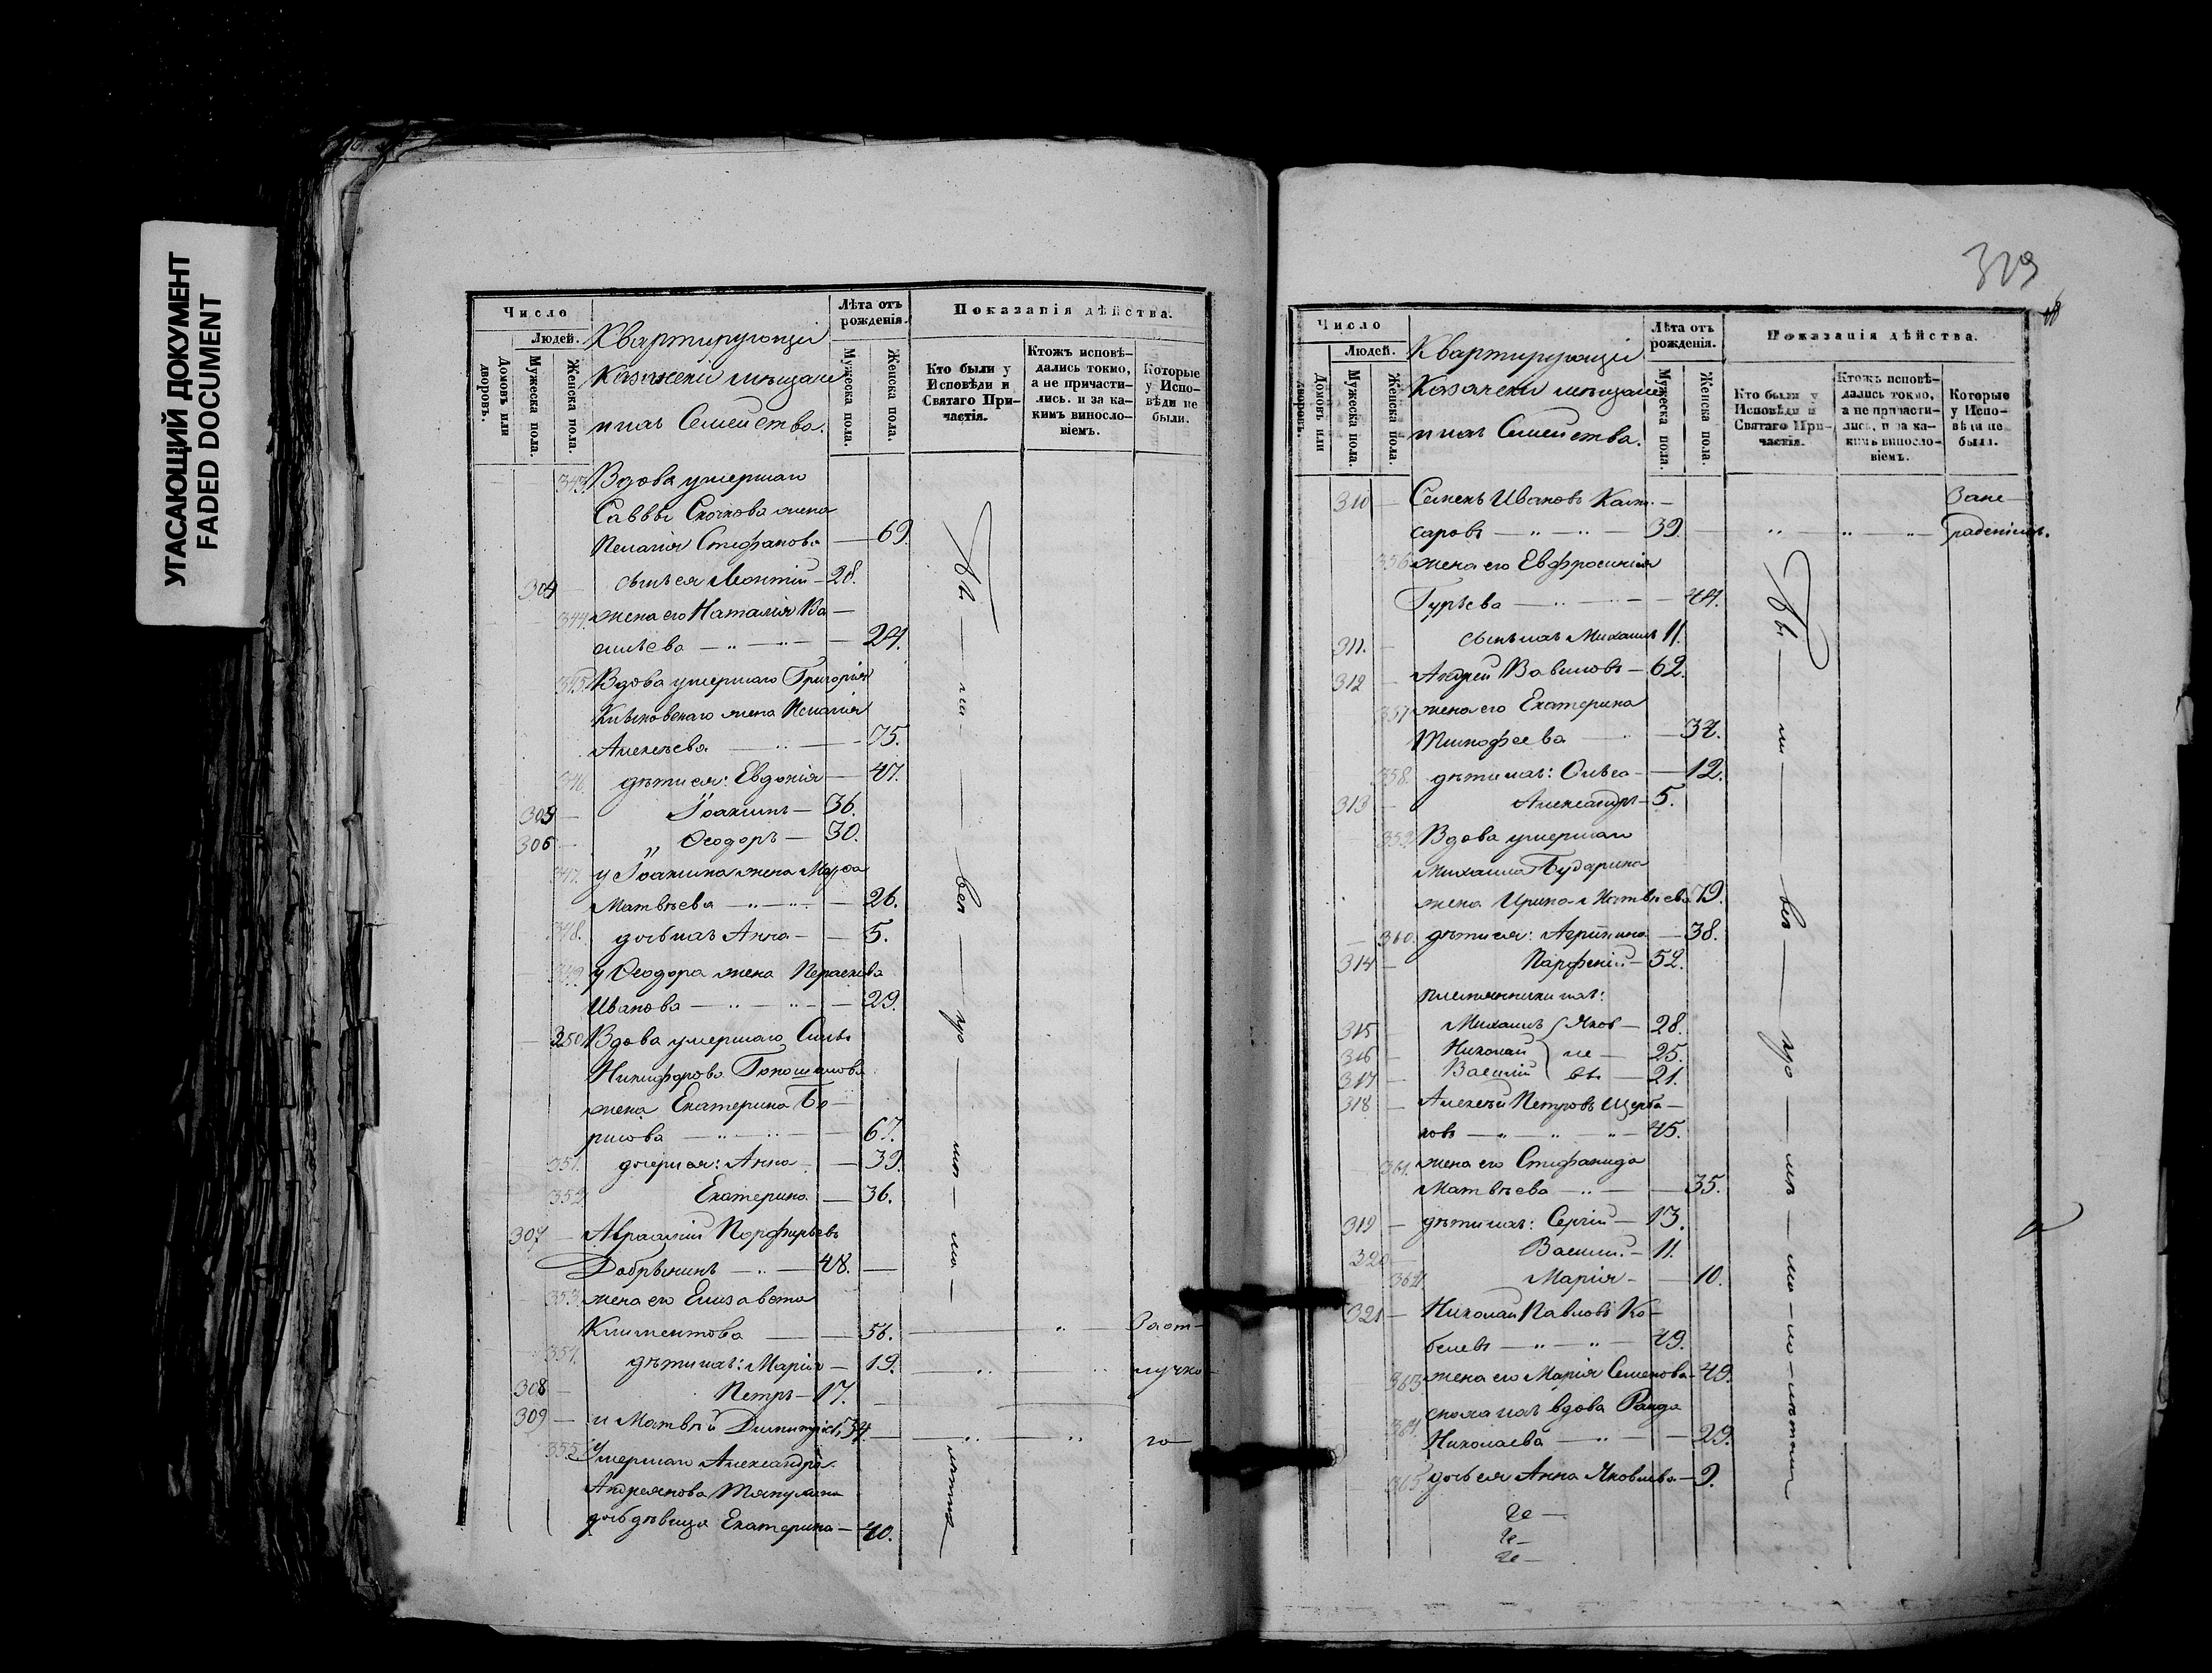 УГАСАЮЩИЙ ДОКУМЕНТ
FADED DOCUMENT
Число
Людей.
Домовъ или дворовъ.
Мужеска пола.
Женска пола.
Квартирующіи
Казачьи мѣщане
и ихъ Семейства.
Лѣта отъ рожденія.
Мужеска пола.
Женска пола.
Показанія дѣйства.
Кто были у Исповѣди и Святаго Причастія.
Ктожъ исповѣдались токмо, а не причастились. и за какимъ винословіемъ.
Которые у Исповѣди не были.
343. Вдова умершаго
Саввы жена
Пелагія Стефанова — 69.
304 — сынъ ея Леонтій — 28.
344. жена его Наталія Ва—
сильева — „ — „ — 24.
345. Вдова умершаго Григорія
жена Пелагія
Алексѣева — „ — 75.
346. дѣти ея: Евдокія — 47.
305 — Іоакимъ — 36.
306 — „ Ѳеодоръ — 30.
347. у Іоакима жена Марѳа
Матвѣева — „ — „ — 26.
348. дочь ихъ Анна — 5.
349. у Ѳеодора жена Параскева
Иванова — „ — „ — 29.
350. Вдова умершаго Силы
Никифорова
жена Екатерина Бо—
рисова — „ — „ — 67.
351. дочери ея: Анна — 39.
352. Екатерина — 36.
307 — Авраамій Порфирьевъ
Добрынинъ — „ — 48. —
353. жена его Елизавета
Климентова — 56. — „ За от—
354. дѣти ихъ: Марія — 19. — „ „ лучко—
308 — Петръ — 17. —
309 — и Матвѣй 34. — „ — „ — ю—
355. Умершаго Александра
Андреянова
дочь дѣвица Екатерина — 40.
329
Число
Людей.
Домовъ или дворовъ.
Мужеска пола.
Женска пола.
Квартирующіи
Казачьи мѣщане
и ихъ Семейства.
Лѣта отъ рожденія.
Мужеска пола.
Женска пола.
Показанія дѣйства.
Кто были у Исповѣди и Святаго Причастія.
Ктожъ исповѣдались токмо, а не причастились, и за какимъ винословіемъ.
Которые у Исповѣди не были.
310 — Семенъ Ивановъ — За не—
саровъ — „ — „ — 39. — „ „ — „ — радѣніемъ.
356. жена его Евфросинія
Гурьева — „ — 44.
311. — сынъ ихъ Михаилъ 11.
312 — Андрей Вавиловъ — 62.
357. жена его Екатерина
Тимофеева — 32.
358. дѣти ихъ: Ольга — 12.
313 — Александръ — 5.
359. Вдова умершаго
Михаила Бударина
жена Ирина Матвѣева 79.
360. дѣти ея: Агрипина — 38.
314 — Парфеній — 52.
племянники ихъ:
315 — Михаилъ } Яков — 28.
316 — Николай } ле — 25.
317 — Василій } вы — 21.
318 — Алексѣй Петровъ Щерба—
ковъ — „ „ „ — 45.
361. жена его Стефанида
Матвѣева — „ — 35.
319 — дѣти ихъ: Сергій — 13.
320 — Василій — 11.
362. Марія — 10.
321 — Николай Павловъ Ко—
белевъ — „ — „ — 49.
363. жена его Марія Семенова — 49.
364. сноха ихъ вдова Раида
Николаева — „ — 29.
365. дочь ея Анна Яковлева — 9.